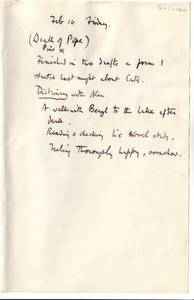 Feb 10 Friday.
(Death of Pope)
Pius XI
Finished in two drafts a form I
started last night about Cats.
with
A walk with Beryl to the Lake after
dark.
Reading & checking his Novel
Feeling thoroughly happy, somehow.